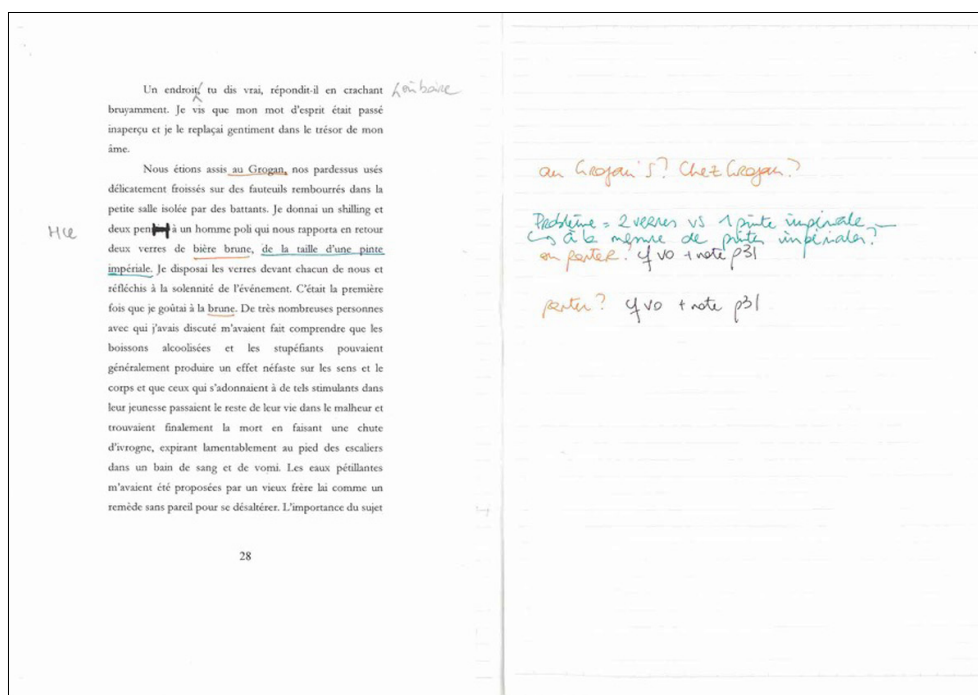 Un endroit, tu dis vrai, répondit-il en crachant
bruyamment. Je vis que mon mot d'esprit était passé
inaperçu et je le replaçai gentiment dans le trésor de mon
âme.
Nous étions assis au Grogan, nos pardessus usés
délicatement froissés sur des fauteuils rembourrés dans la
petite salle isolée par des battants. Je donnai un shilling et
deux pen à un homme poli qui nous rapporta en retour
deux verres de bière brune, de la taille d'une pinte
impériale. Je disposai les verres devant chacun de nous et
réfléchis à la solennité de l'événement. C'était la première
fois que je goûtai à la brune. De très nombreuses personnes
avec qui j'avais discuté m'avaient fait comprendre que les
boissons alcoolisées et les stupéfiants pouvaient
généralement produire un effet néfaste sur les sens et le
corps et que ceux qui s'adonnaient à de tels stimulants dans
leur jeunesse passaient le reste de leur vie dans le malheur et
trouvaient finalement la mort en faisant une chute
d'ivrogne, expirant lamentablement au pied des escaliers
dans un bain de sang et de vomi. Les eaux pétillantes
m'avaient été proposées par un vieux frère lai comme un
remède sans pareil pour se désaltérer. L'importance du sujet
28
au Grogan's? Chez Grogan?
Problème = 2 verres vs 1 pinte impériale
à la mesure de pintes impériales?
ou porter? cf vo + note p31
porter? cf vo + note p31